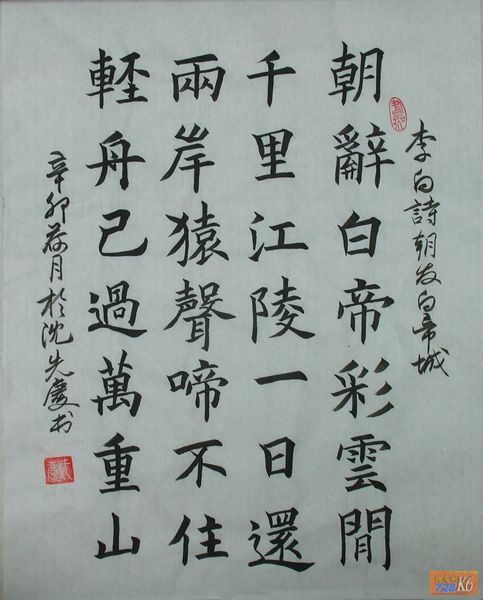 李白詩朝发白帝城
朝辭白帝彩雲間
千里江陵一日還
兩岸猿聲啼不住
軽舟已過萬重山
辛卯荷月於沈先慶书
728K6